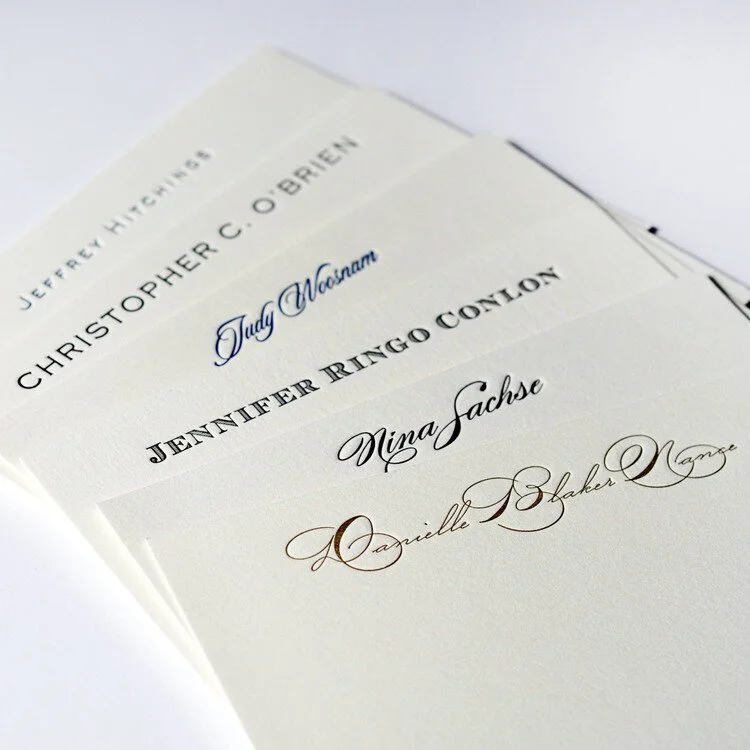 JEFFREY HITCHINGS
CHRISTOPHER C. O'BRIEN
Judy Woosnam
JENNIFER RINGO CONLON
Nina Sachse
Danielle Blaker Nance